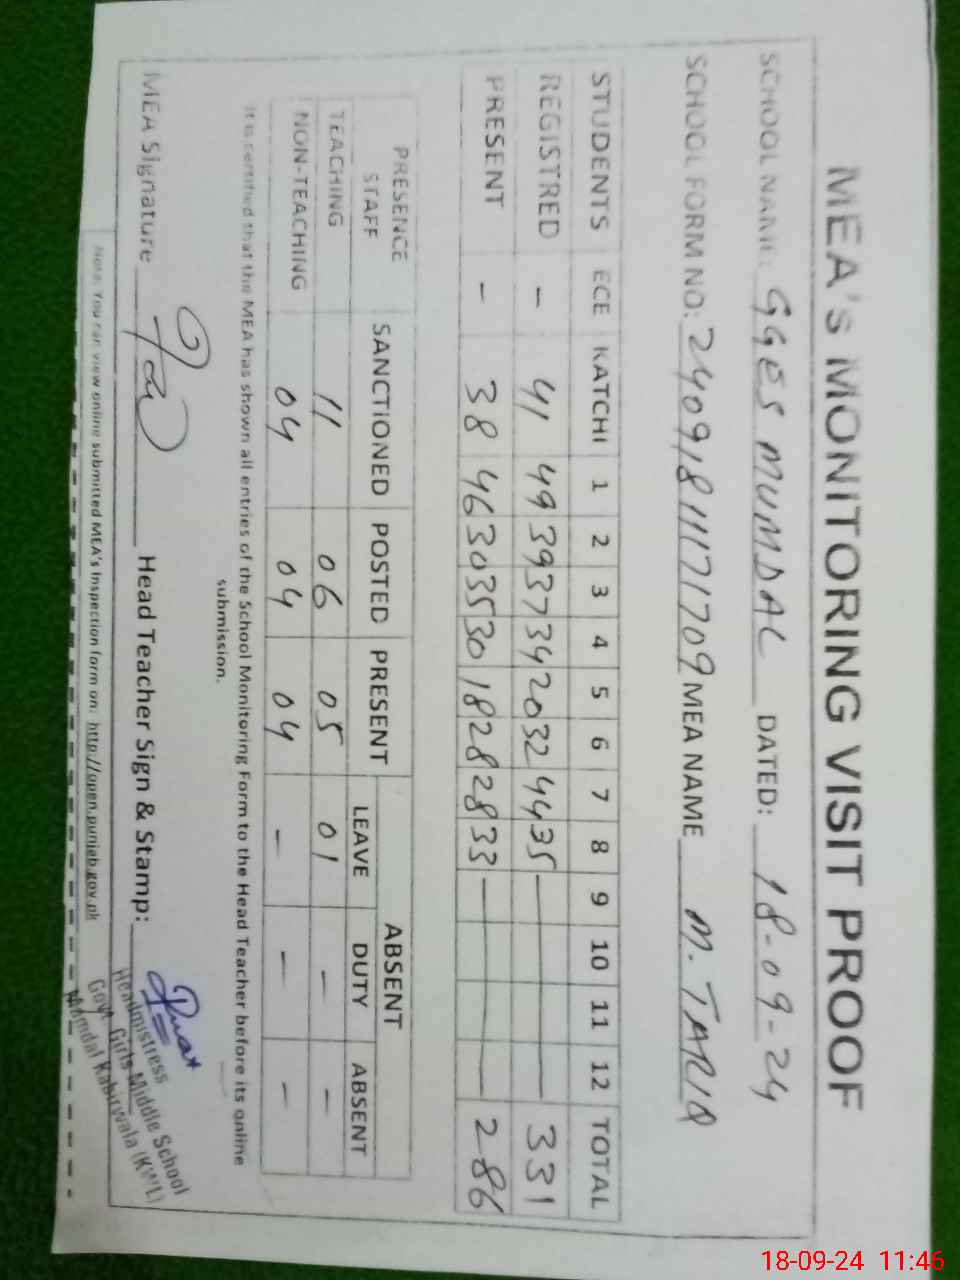 MEA's MONITORING VISIT PROOF
SCHOOL NAME: GGES MUMDAL DATED: 18-09-24
SCHOOL FORM NO: 24091811171709 MEA NAME M. TARIQ
STUDENTS ECE KATCHI 1 2 3 4 5 6 7 8 9 10 11 12 TOTAL
REGISTRED - 41 49 39 37 34 20 32 44 35 331
PRESENT - 38 46 30 35 30 18 28 28 33 286
PRESENCE STAFF SANCTIONED POSTED PRESENT ABSENT
LEAVE DUTY ABSENT
TEACHING 11 06 05 01 - -
NON-TEACHING 04 04 04 - - -
It is certified that the MEA has shown all entries of the School Monitoring Form to the Head Teacher before its online
submission.
MEA Signature Head Teacher Sign & Stamp:
Headmistress
Govt. Girls Middle School
Mumdal Kabirwala (KWL)
Note: You can view online submitted MEA's Inspection form on: http://open.punjab.gov.pk
18-09-24 11:46